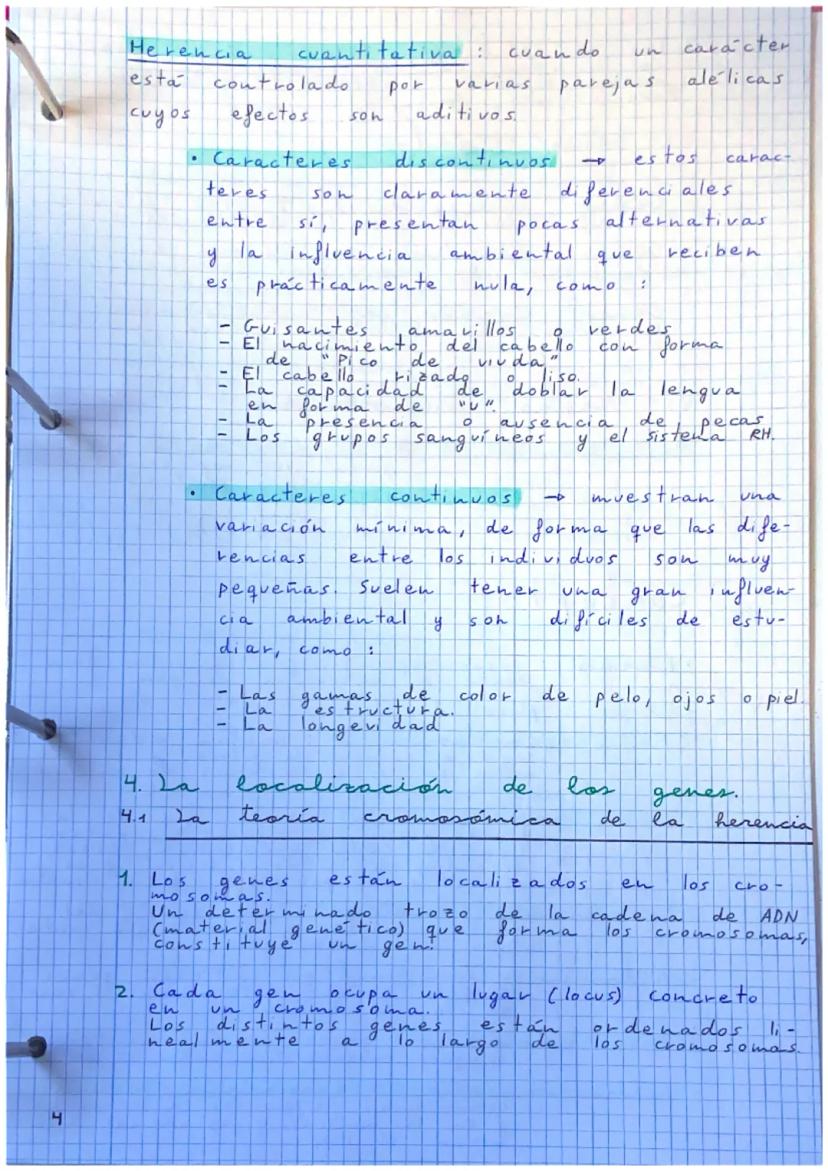 Herencia cuantitativa : cuando un carácter
está controlado por varias parejas alélicas
cuyos efectos son aditivos.
• Caracteres discontinuos → estos carac-
teres son claramente diferenciales
entre sí, presentan pocas alternativas
y la influencia ambiental que reciben
es prácticamente nula, como :
- Guisantes amarillos o verdes
- El nacimiento del cabello con forma
de "Pico de viuda"
- El cabello rizado o liso.
- La capacidad de doblar la lengua
en forma de "U".
- La presencia o ausencia de pecas
- Los grupos sanguíneos y el sistema RH.
• Caracteres continuos → muestran una
variación mínima, de forma que las dife-
rencias entre los individuos son muy
pequeñas. Suelen tener una gran influen-
cia ambiental y son difíciles de estu-
diar, como :
- Las gamas de color de pelo, ojos o piel.
- La estructura.
- La longevidad
4. La localización de los genes.
4.1 La teoría cromosómica de la herencia
1. Los genes están localizados en los cro-
mosomas.
Un determinado trozo de la cadena de ADN
(material genético) que forma los cromosomas,
constituye un gen.
2. Cada gen ocupa un lugar (locus) concreto
en un cromosoma.
Los distintos genes están ordenados li-
nealmente a lo largo de los cromosomas.
4